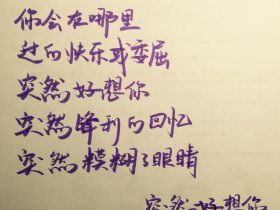 你会在哪里
过的快乐或委屈
突然好想你
突然锋利的回忆
突然模糊了眼睛
突然好想你